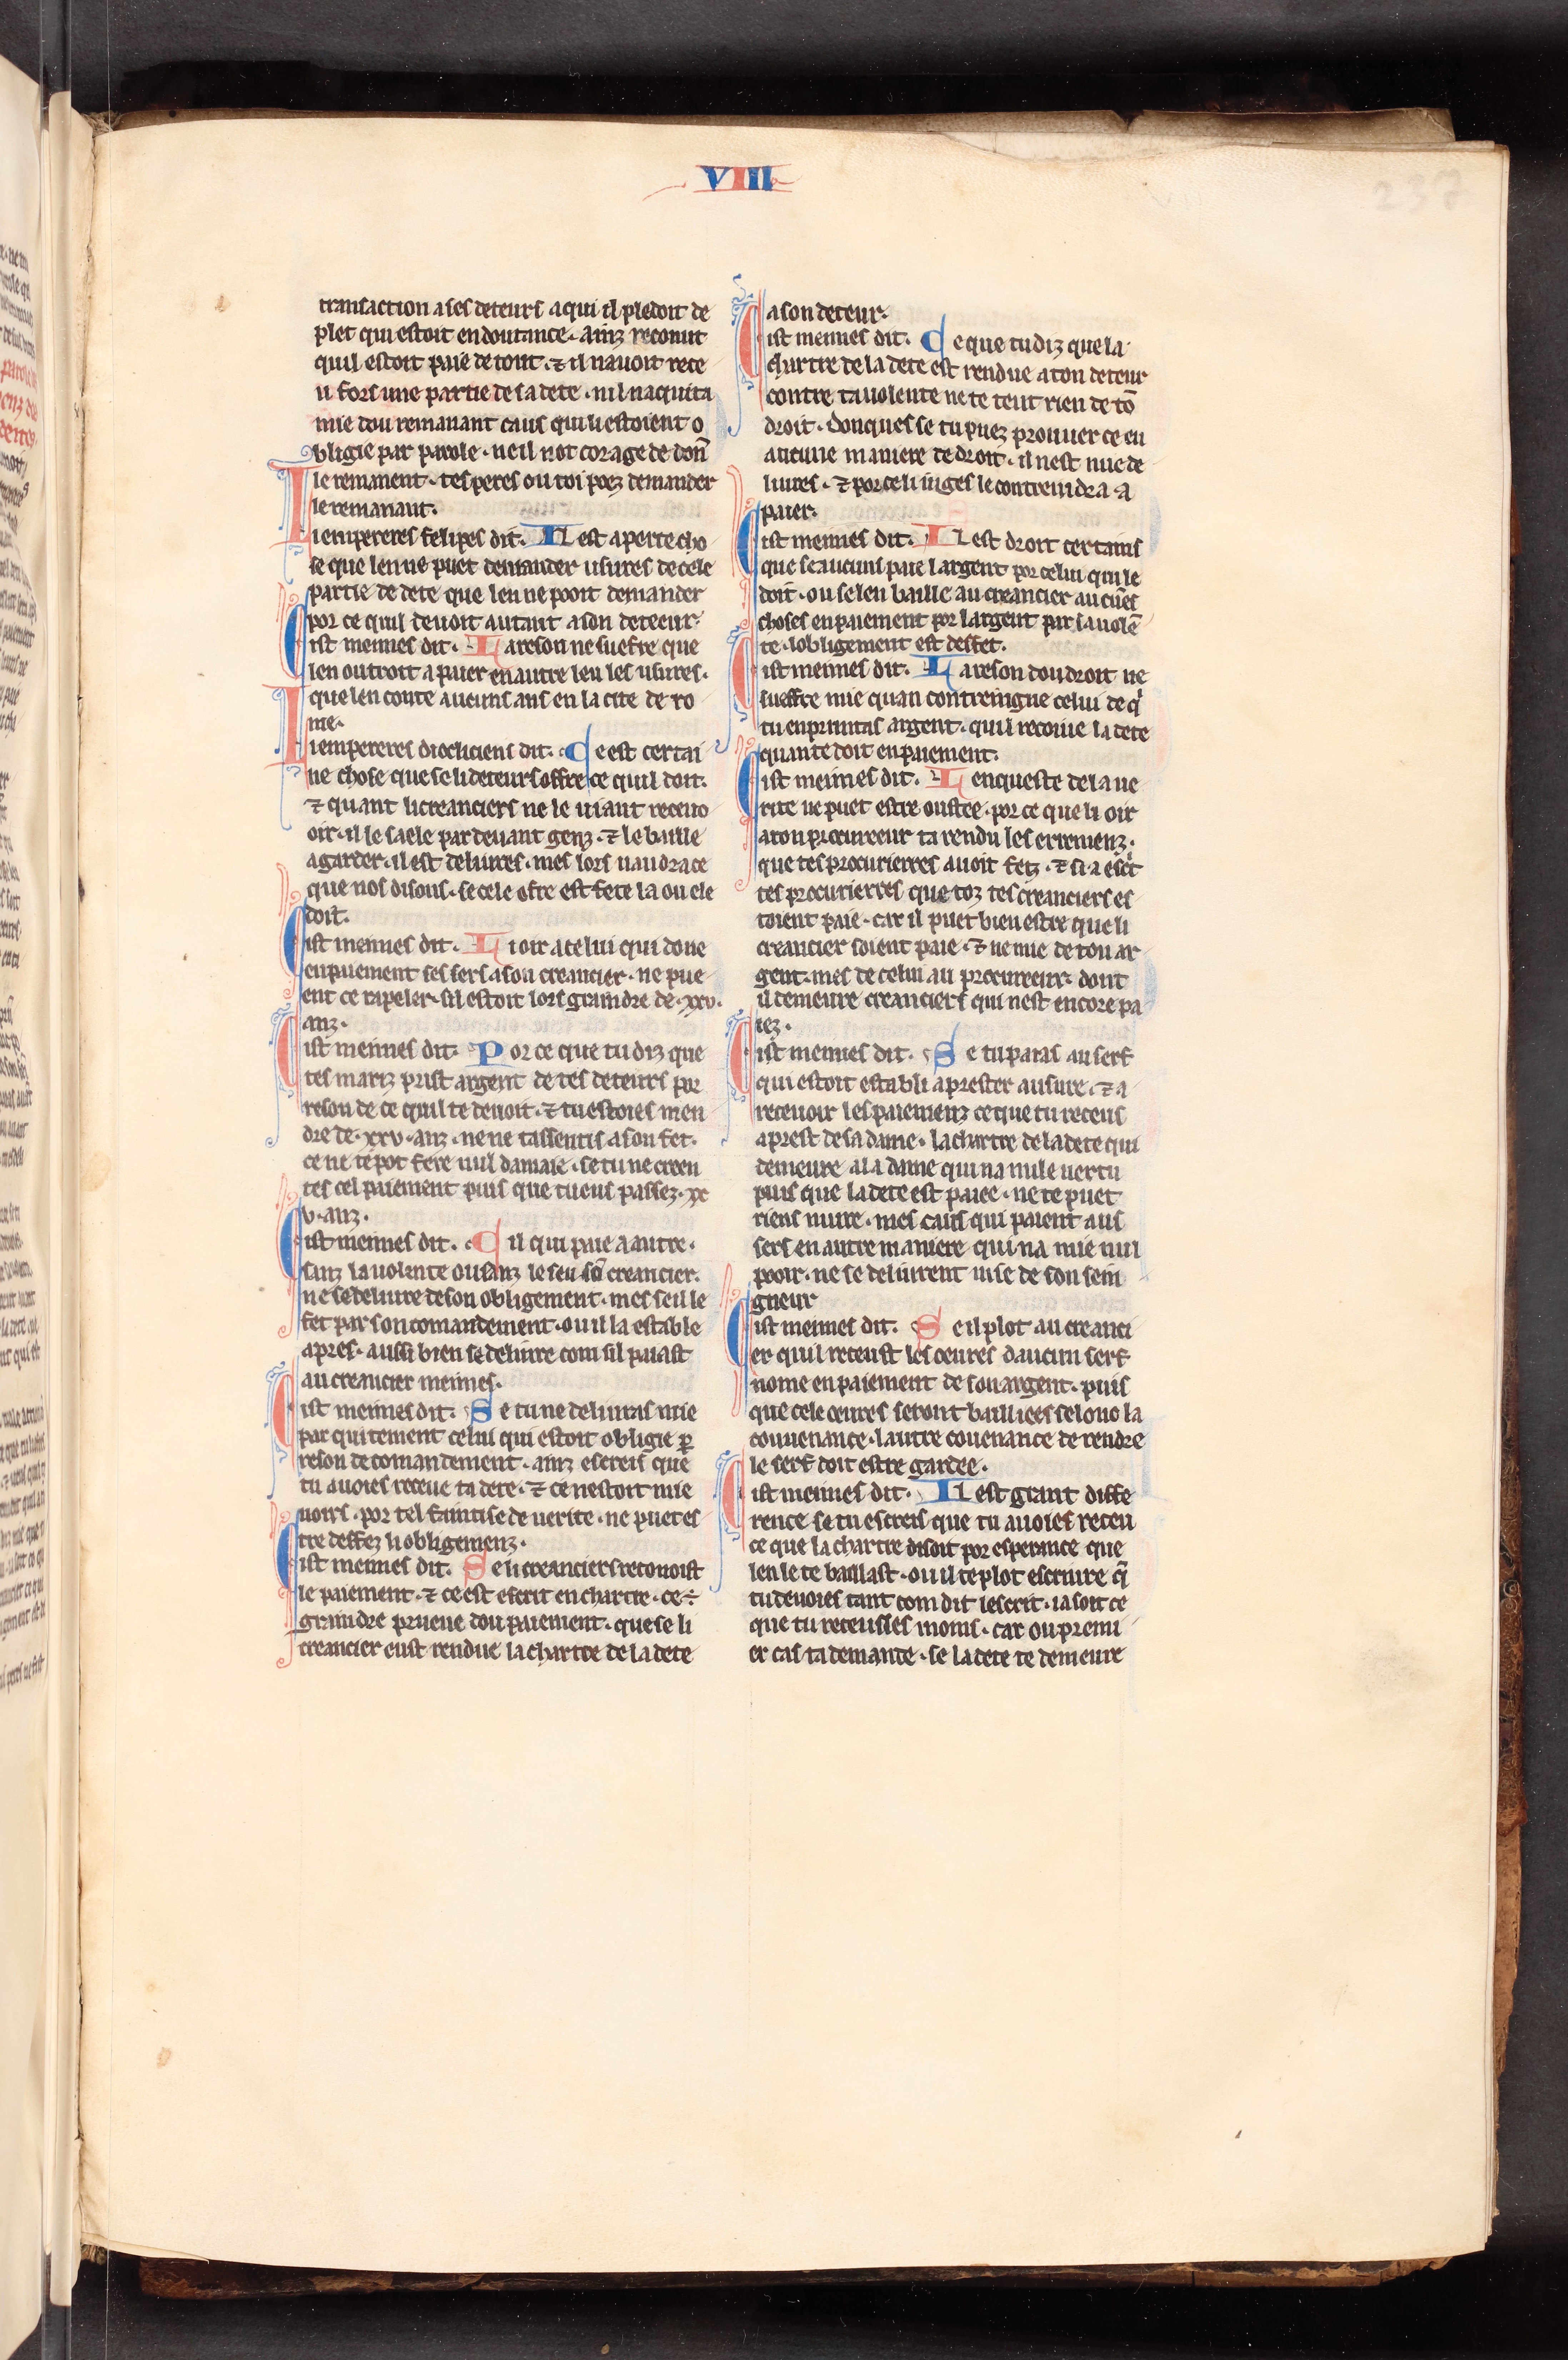 VIII
237
transaction a ses deteurs a qui il pledoit de
plet qui estoit en doutance · ainz reconut
quil estoit paie de tout · ⁊ il nauoit rece
u fors une partie de sa dete · nil naquita
mie dou remanant caus qui li estoient o
bligie par parole · ne il not corage de don̄
le remanent · tes peres ou toi poez demander
le remanant ·
Li empereres felipes dit · Il est aperte cho
se que len ne puet demander usures de cele
partie de dete que len ne pooit demander
por ce quil deuoit autant a son deteeur ·
Cist meimes dit · La reson ne suefre que
len outroit a paier en autre leu les usures ·
que len conte aucuns ans en la cite de ro
me ·
Li empereres diocliciens dit · Ce est certai
ne chose que se li deteurs offre ce quil doit ·
⁊ quant li creanciers ne le uiaut receuo
oir · il le saele par deuant genz · ⁊ le baille
a garder · il est deliures · mes lors uaudra ce
que nos disons · se cele ofre est fete la ou ele
doit ·
Cist meimes dit · Li oir a celui qui done
en paiement ses sers a son creancier · ne pue
ent ce rapeler · sil estoit lors graindre de · xxv ·
anz ·
Cist meimes dit · Por ce que tu diz que
tes mariz prist argent de tes deteurs por
reson de ce quil te deuoit · ⁊ tu estoies men
dre de · xxv · anz · ne ne tassentis a son fet ·
ce ne te pot fere nul damaie · se tu ne creen
tes cel paiement puis que tu eus passez · xx
v · anz ·
Cist meimes dit · Cil qui paie a autre ·
sanz la uolente ou sanz le seu sō creancier ·
ne se deliure de son obligement · mes se il le
fet par son comandement · ou il la estable
apres · aussi bien se deliure com sil paiast
au creancier meimes ·
Cist meimes dit · Se tu ne deliuras mie
par quitement celui qui estoit obligie ꝑ
reson de comandement · ainz escreis que
tu auoies receue ta dete · ⁊ ce nestoit mie
uoirs · por tel faintise de uerite · ne puet es
tre deffez li obligemenz ·
Cist meimes dit · Se li creanciers reconoist
le paiement · ⁊ ce est escrit en chartre · ce ÷
graindre prueue dou paiement · que se li
creancier eust rendue la chartre de la dete
a son deteur ·
Cist meimes dit · Ce que tu diz que la
chartre de la dete est rendue a ton deteur
contre ta uolente ne te teut rien de tō
droit · donques se tu puez prouuer ce en
aucune maniere de droit · il nest mie de
liures · ⁊ por ce li iuges le contreindra a
paier ·
Cist meimes dit · Il est droit certains
que se aucuns paie largent por celui qui le
doit · ou se len baille au creancier aucūes
choses en paiement por largent par sa uolē
te · lobligement est deffet ·
Cist meimes dit · La reson dou droit ne
sueffre mie quan contreingne celui de qi
tu enpruntas argent · quil recoiue la dete
quan te doit en paiement ·
Cist meimes dit · Lenqueste de la ue
rite ne puet estre oustee · por ce que li oir
a ton procureeur ta rendu les erremenz ·
que tes procurierres auoit fetz · ⁊ si a escīt
tes procurierres que toz tes creanciers es
toient paie · car il puet bien estre que li
creancier soient paie · ⁊ ne mie de ton ar
gent · mes de celui au procureeur · dont
il demeure creanciers qui nest encore pa
iez ·
Cist meimes dit · Se tu paias au serf
qui estoit establi a prester a usure · ⁊ a
receuoir les paiemenz ce que tu receus
a prest de sa dame · la chartre de la dete qui
demeure a la dame qui na nule uertu
puis que la dete est paiee · ne te puet
riens nuire · mes caus qui paient aus
sers en autre maniere qui na mie nul
pooir · ne se deliurent mie de son sein
gneur
Cist meimes dit · Se il plot au creanci
er quil receust les oeures daucun serf
nome en paiement de son argent · puis
que cele oeures seront bailliees selonc la
couuenance · lautre couenance de rendre
le serf doit estre gardee ·
Cist meimes dit · Il est grant diffe
rence se tu escreis que tu auoies receu
ce que la chartre disoit por esperance que
len le te baillast · ou il te plot escriure q̄
tu deuoies tant com dit lescrit · ia soit ce
que tu receusses moins · car ou premi
er cas ta demande · se la dete te demeure